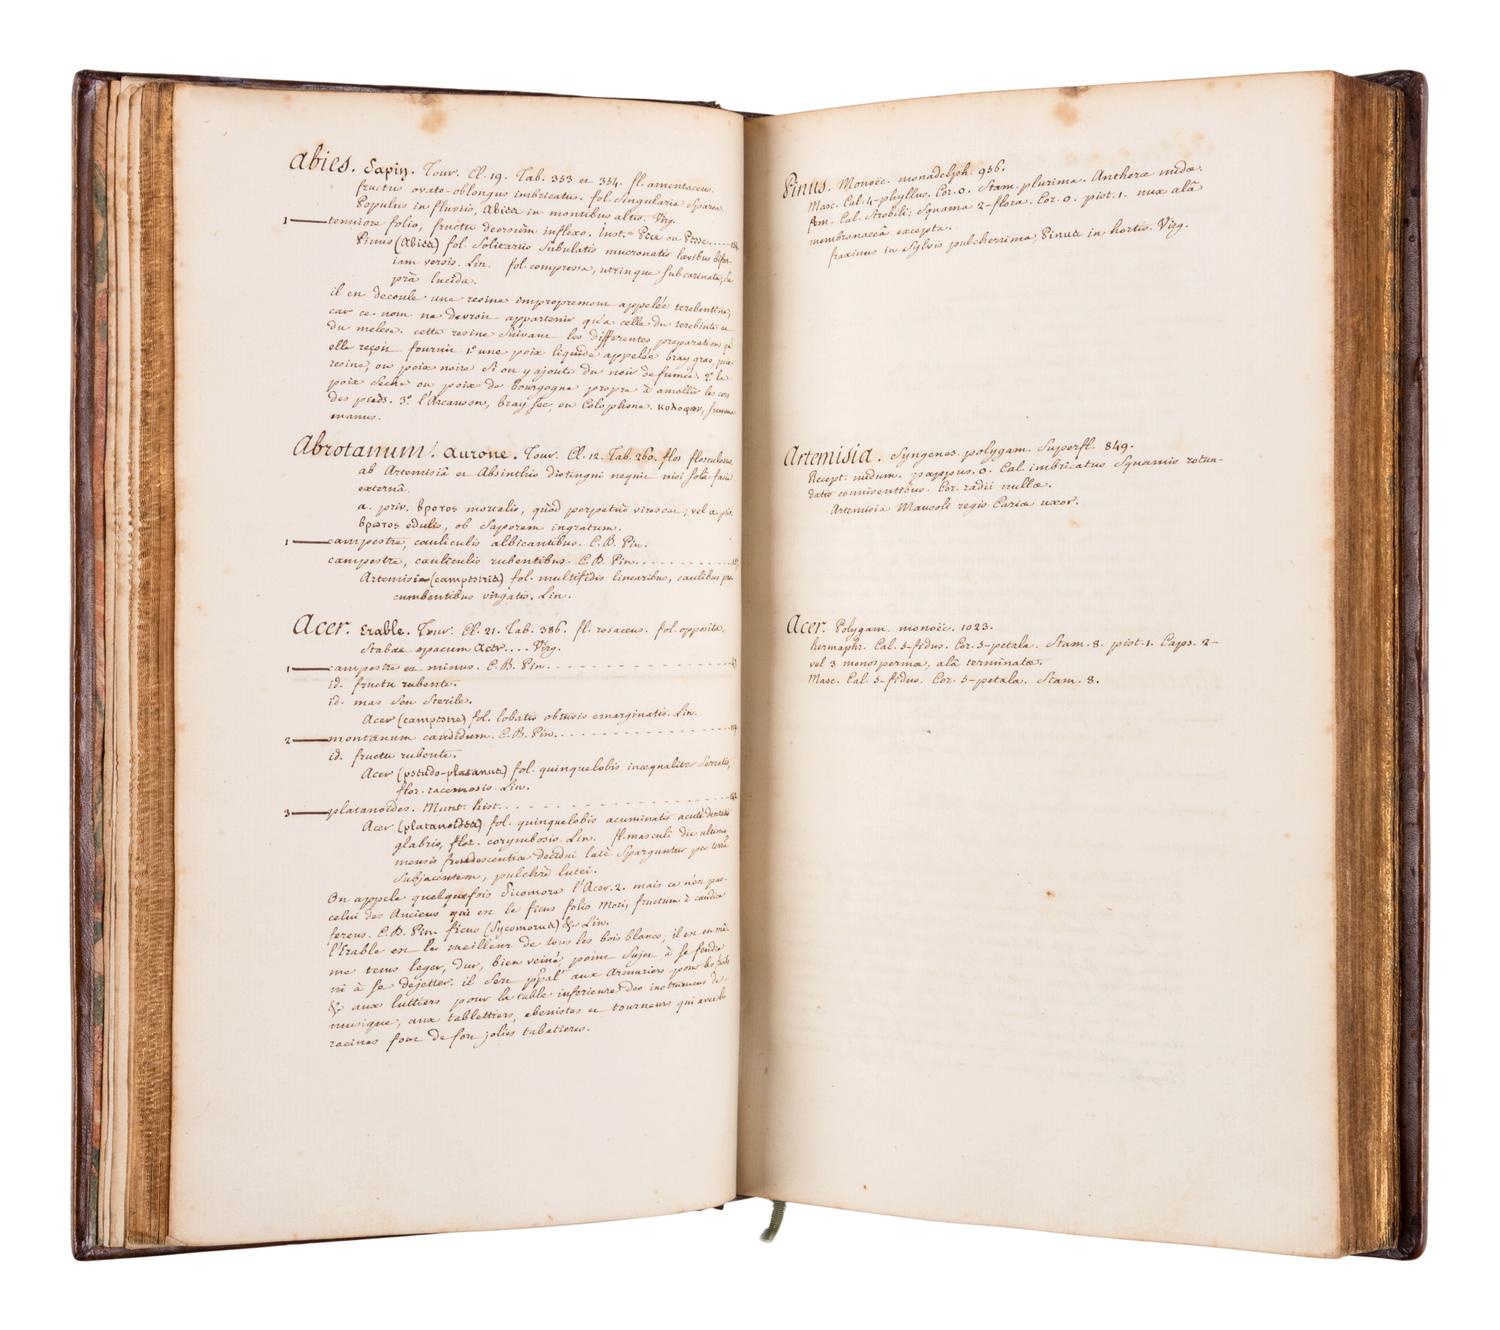 Abies. Sapin. Tour. Cl. 19. Tab. 353 et 354. fl. amentaceus.
fructus ovato-oblongus imbricatus. fol. Singularia Sparsa.
Populus in fluviis, Abies in montibus altis. Virg.
1 tenuiore folio, fructu deorsùm inflexo. inst.
Pinus (Abies) fol. Solitariis Subulatis mucronatis lævibus bifa-
riam versis. Lin. fol. compressa, utrinque subcarinata,
prà lucida.
il en decoule une resine improprement appelée terebentine,
car ce nom ne devroit appartenir qu'a celle du terebinte et
du meleze. cette resine Suivant les differentes preparations qu'
elle reçoit fournit 1.º une poix liquide appelée bray gras, poix
resine, ou poix noire Si on y ajoute du noir de fumée. 2.º la
poix Seche ou poix de Bourgogne propre à amollir les cors
des pieds. 3.º l'Arcanson, bray Sec, ou Colophone.
manus.
Abrotanum. Aurone. Tour. Cl. 12. Tab. 260. flos flosculosus
ab Artemisiâ et Absinthio distingui nequit nisi Solâ facie
externâ.
a. priv. βροτος mortalis, quòd perpetuò virescat; vel a. priv
βρωτος edulis, ob Saporem ingratum.
1 campestre, cauliculis albicantibus. C. B. Pin.
campestre, cauliculis rubentibus. C. B. Pin.
Artemisia (campestris) fol. multifidis linearibus, caulibus pro
cumbentibus virgatis. Lin.
Acer. Erable. Tour. Cl. 21. Tab. 386. fl. rosaceus. fol. opposita.
Stabat opacum Acer.... Virg.
1 campestre et minus. C. B. Pin.
id. fructu rubente.
id. mas Seu Sterile.
Acer (campestre) fol. lobatis obtusis emarginatis. Lin.
2 montanum candidum. C. B. Pin.
id. fructu rubente.
Acer (pseudo-platanus) fol. quinquelobis inæqualiter Serratis,
flor. racemosis. Lin.
3 platanoides. Munt. hist.
Acer (platanoides) fol. quinquelobis acuminatis acutè dentatis
glabris, flor. corymbosis. Lin. fl. masculi die ultimo
mensis frondescentiæ decidui latè Sparguntur per terrâ
Subjacentem, pulchrè lutei.
On appele quelquefois Sicomore l'Acer. 2. mais ce n'est pas
celui des Anciens qui est le ficus folio Mori, fructum è caudice
ferens. C. B. Pin. ficus (Sycomorus) & Lin.
l'Erable est le meilleur de tous les bois blancs; il est en mê-
me tems leger, dur, bien veiné, point Sujet à Se fendre
ni à Se dejetter. il Sert ppal.t aux Armuriers pour les fusils
& aux luttiers pour la table inferieure des instrumens de
musique, aux tablettiers, ebenistes et tourneurs qui avec les
racines font de fort jolies tabatieres.
Pinus. Monoëc. monadelph. 956.
Masc. Cal. 4-phyllus. Cor. 0. Stam. plurima. Antheræ nudæ.
fem. Cal. Strobili; Squama 2-flora. Cor. 0. pist. 1. nux alâ
membranaceâ excepta.
fraxinus in Sylvis pulcherrima, Pinus in hortis. Virg.
Artemisia. Syngenes. polygam. Superfl. 849.
Recept. nudum. pappus. 0. Cal. imbricatus Squamis rotun-
datis conniventibus. Cor. radii nullæ.
Artemisia Mausoli regis Cariæ uxor.
Acer. Polygam. monoëc. 1023.
hermaphr. Cal. 5-fidus. Cor. 5-petala. Stam. 8. pist. 1. Caps. 2-
vel 3 monospermæ, alâ terminatæ.
Masc. Cal. 5-fidus. Cor. 5-petala. Stam. 8.